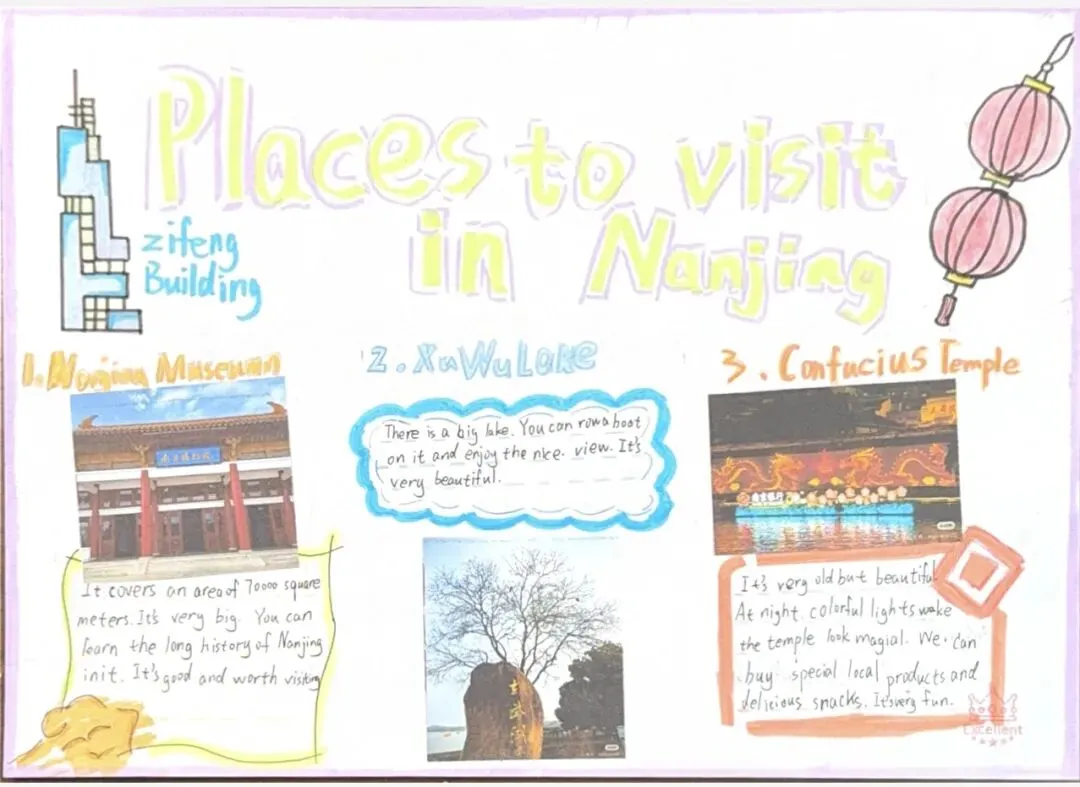 Places to visit
in Nanjing
zifeng
Building
1. Nanjing Museum
南京博物院
It covers an area of 70000 square
meters. It's very big. You can
learn the long history of Nanjing
init. It's good and worth visiting
2. XuWu Lake
There is a big lake. You can row a boat
on it and enjoy the nice. view. It's
very beautiful.
3. Confucius Temple
It's very old but beautiful
At night, colorful lights make
the temple look magial. We can
buy special local products and
delicious snacks. It's very fun.
Excellent